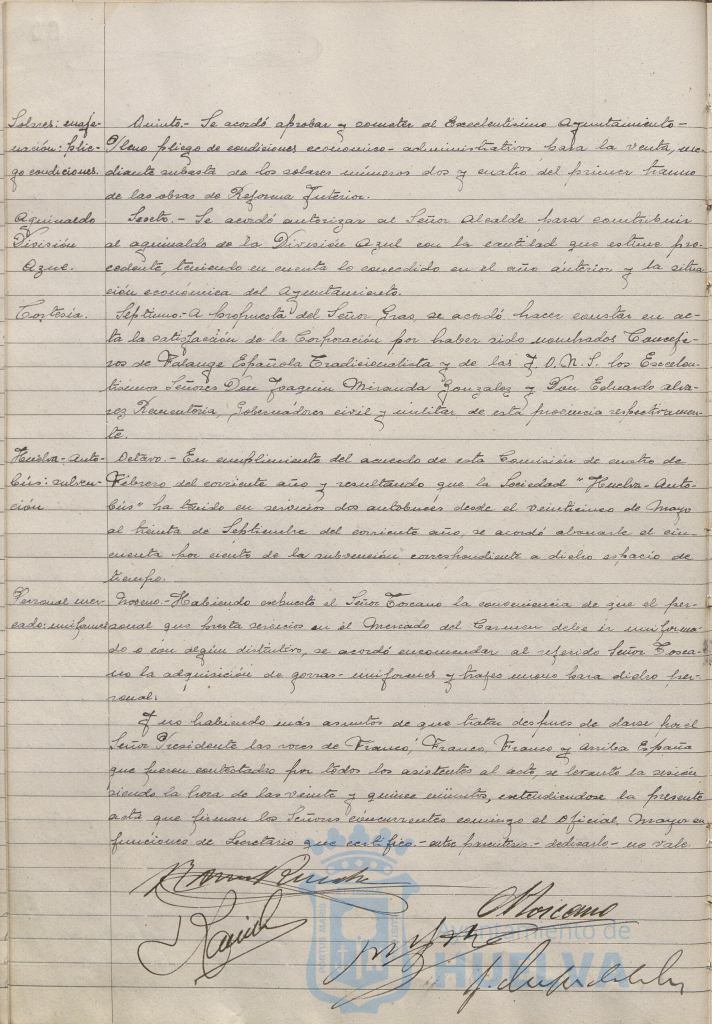 Solares: enaje-
nación: plie-
go condiciones.
Quinto.- Se acordó aprobar y someter al Excelentísimo Ayuntamiento-
Pleno pliego de condiciones económico-administrativas para la venta, me-
diante subasta de los solares números dos y cuatro del primer tramo
de las obras de Reforma Interior.
Aguinaldo
División
Azul.
Sexto.- Se acordó autorizar al Señor Alcalde para contribuir
al aguinaldo de la División Azul con la cantidad que estime pro-
cedente, teniendo en cuenta lo concedido en el año anterior y la situa
ción económica del Ayuntamiento.
Cortesía.
Septimo.- A propuesta del Señor Gras, se acordó hacer constar en ac-
ta la satisfacción de la Corporación por haber sido nombrados Conseje-
ros de Falange Española Tradicionalista y de las J.O.N.S. los Excelen-
tísimos Señores Don Joaquin Miranda Gonzalez y Don Eduardo alva-
rez Rementeria, Gobernadores civil y militar de esta provincia respectivamen-
te.
Huelva-Auto-
bús: subven-
ción
Octavo.- En cumplimiento del acuerdo de esta Comisión de cuatro de
Febrero del corriente año y resultando que la Sociedad "Huelva-Auto-
bús" ha tenido en servicios dos autobuses desde el veinticinco de Mayo
al treinta de Septiembre del corriente año, se acordó abonarle el cin-
cuenta por ciento de la subvención correspondiente a dicho espacio de
tiempo.
Personal mer-
cado: uniformes
Noveno.- Habiendo expuesto el Señor Toscano la conveniencia de que el per-
sonal que presta servicios en el Mercado del Carmen debe ir uniforma-
do o con algún distintivo, se acordó encomendar al referido Señor Tosca-
no la adquisición de gorras-uniformes y trajes mono para dicho per-
sonal.
Y no habiendo más asuntos de que tratar despues de darse por el
Señor Presidente las voces de Franco, Franco, Franco y Arriba España
que fueron contestadas por todos los asistentes al acto, se levantó la sesión
siendo la hora de las veinte y quince minutos, extendiendose la presente
acta que firman los Señores concurrentes conmigo el Oficial Mayor en
funciones de Secretario que certifico.-entre parentesis-dedicarlo-no vale
Toscano
Ayuntamiento de
HUELVA